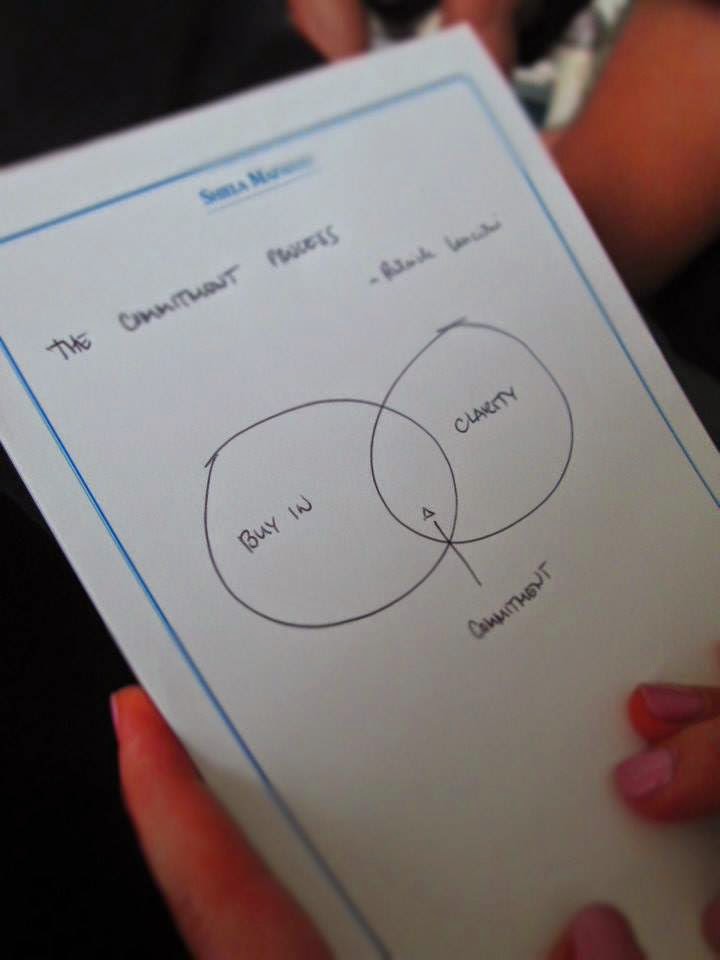 SHEILA
THE COMMITMENT PROCESS
- Patrick Lencioni
CLARITY
BUY IN
COMMITMENT